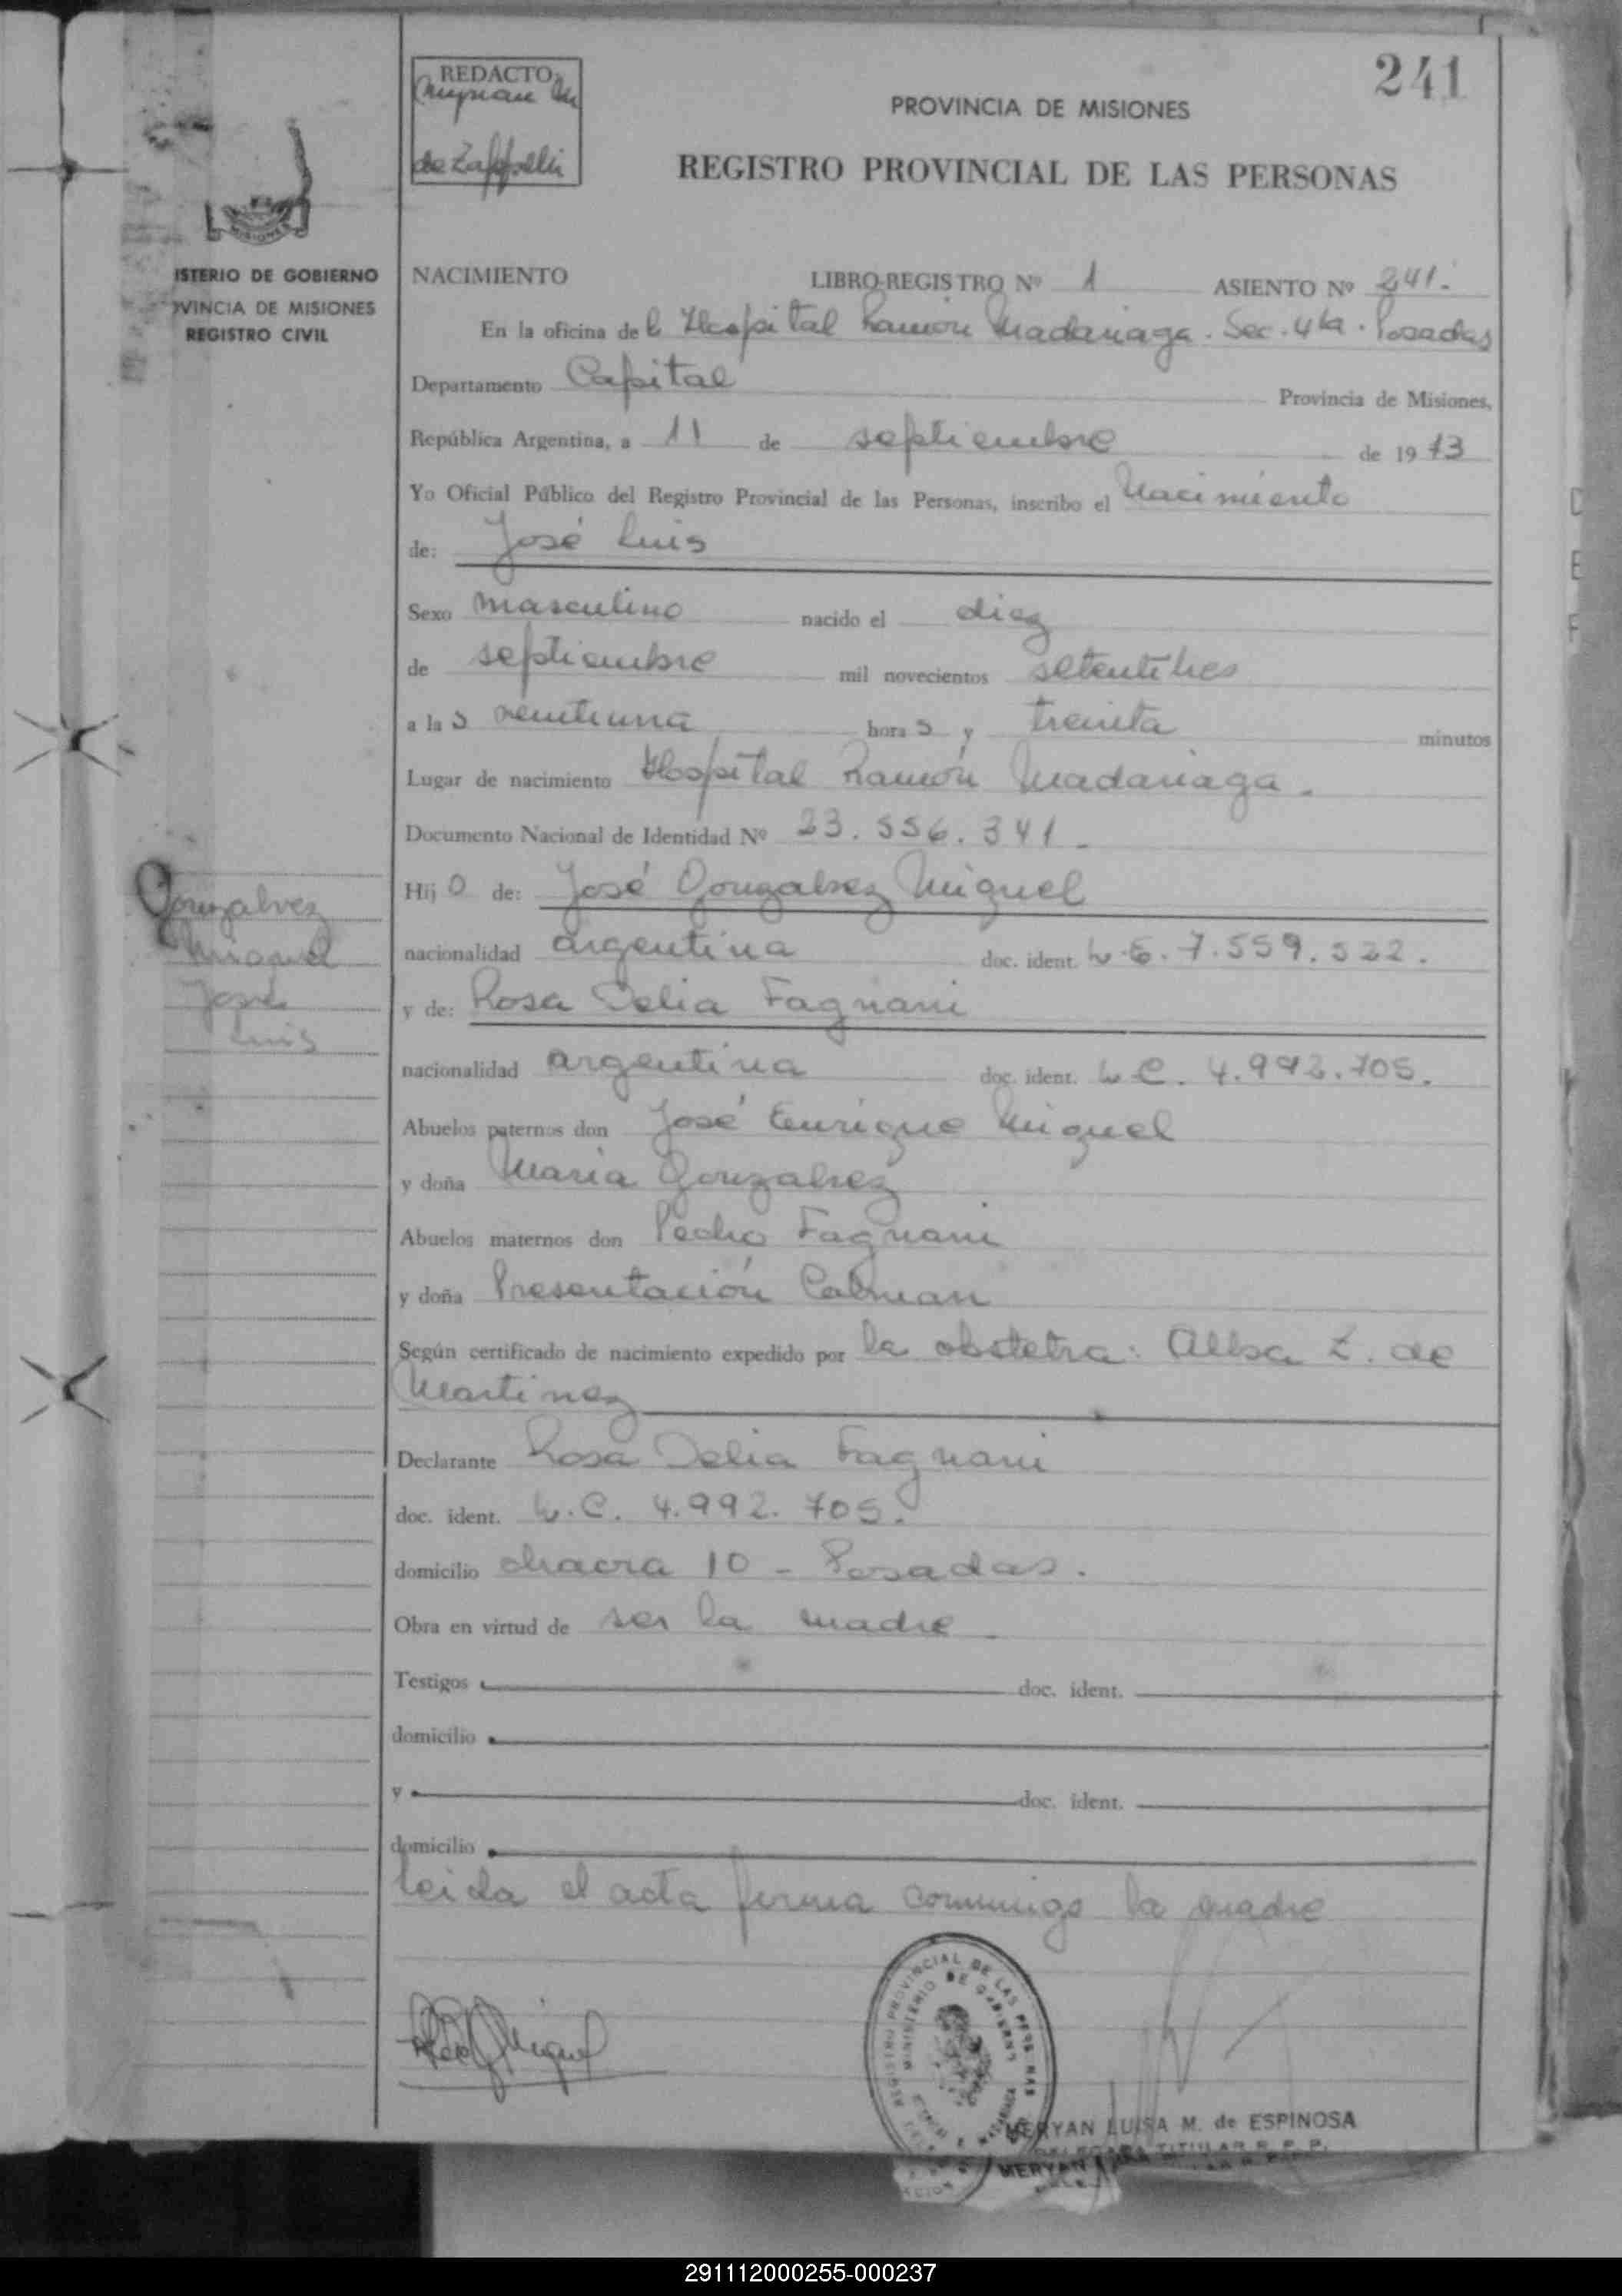 241
REDACTO:
de Zappelli
PROVINCIA DE MISIONES
REGISTRO PROVINCIAL DE LAS PERSONAS
MISIONES
ISTERIO DE GOBIERNO
VINCIA DE MISIONES
REGISTRO CIVIL
NACIMIENTO LIBRO-REGISTRO Nº 1 ASIENTO Nº 241.
En la oficina del Hospital Ramón Madariaga. Sec. 4ta. Posadas
Departamento Capital Provincia de Misiones,
República Argentina, a 11 de septiembre de 1973
Yo Oficial Público del Registro Provincial de las Personas, inscribo el Nacimiento
de: José Luis
Sexo masculino nacido el diez
de septiembre mil novecientos setentitres
a las veintiuna horas y treinta minutos
Lugar de nacimiento Hospital Ramón Madariaga.
Documento Nacional de Identidad Nº 23.556.341.
Hijo de: José Gonzalvez Miguel
nacionalidad argentina doc. ident. L.E. 7.559.522.
y de: Rosa Delia Fagnani
nacionalidad argentina doc. ident. L.C. 4.992.705.
Abuelos paternos don José Enrique Miguel
y doña Maria Gonzalvez
Abuelos maternos don Pedro Fagnani
y doña Presentación Calman
Según certificado de nacimiento expedido por la obstetra: Alba Z. de
Martinez
Declarante Rosa Delia Fagnani
doc. ident. L.C. 4.992.705.
domicilio chacra 10 - Posadas.
Obra en virtud de ser la madre
Testigos doc. ident.
domicilio
y doc. ident.
domicilio
leida el acta firma conmigo la madre
Gonzalvez
Miguel
José
Luis
Miguel
REGISTRO PROVINCIAL DE LAS PERSONAS
MINISTERIO DE GOBIERNO
MERYAN LUISA M. de ESPINOSA
DELEGADA TITULAR R. P. P.
MERYAN
291112000255-000237